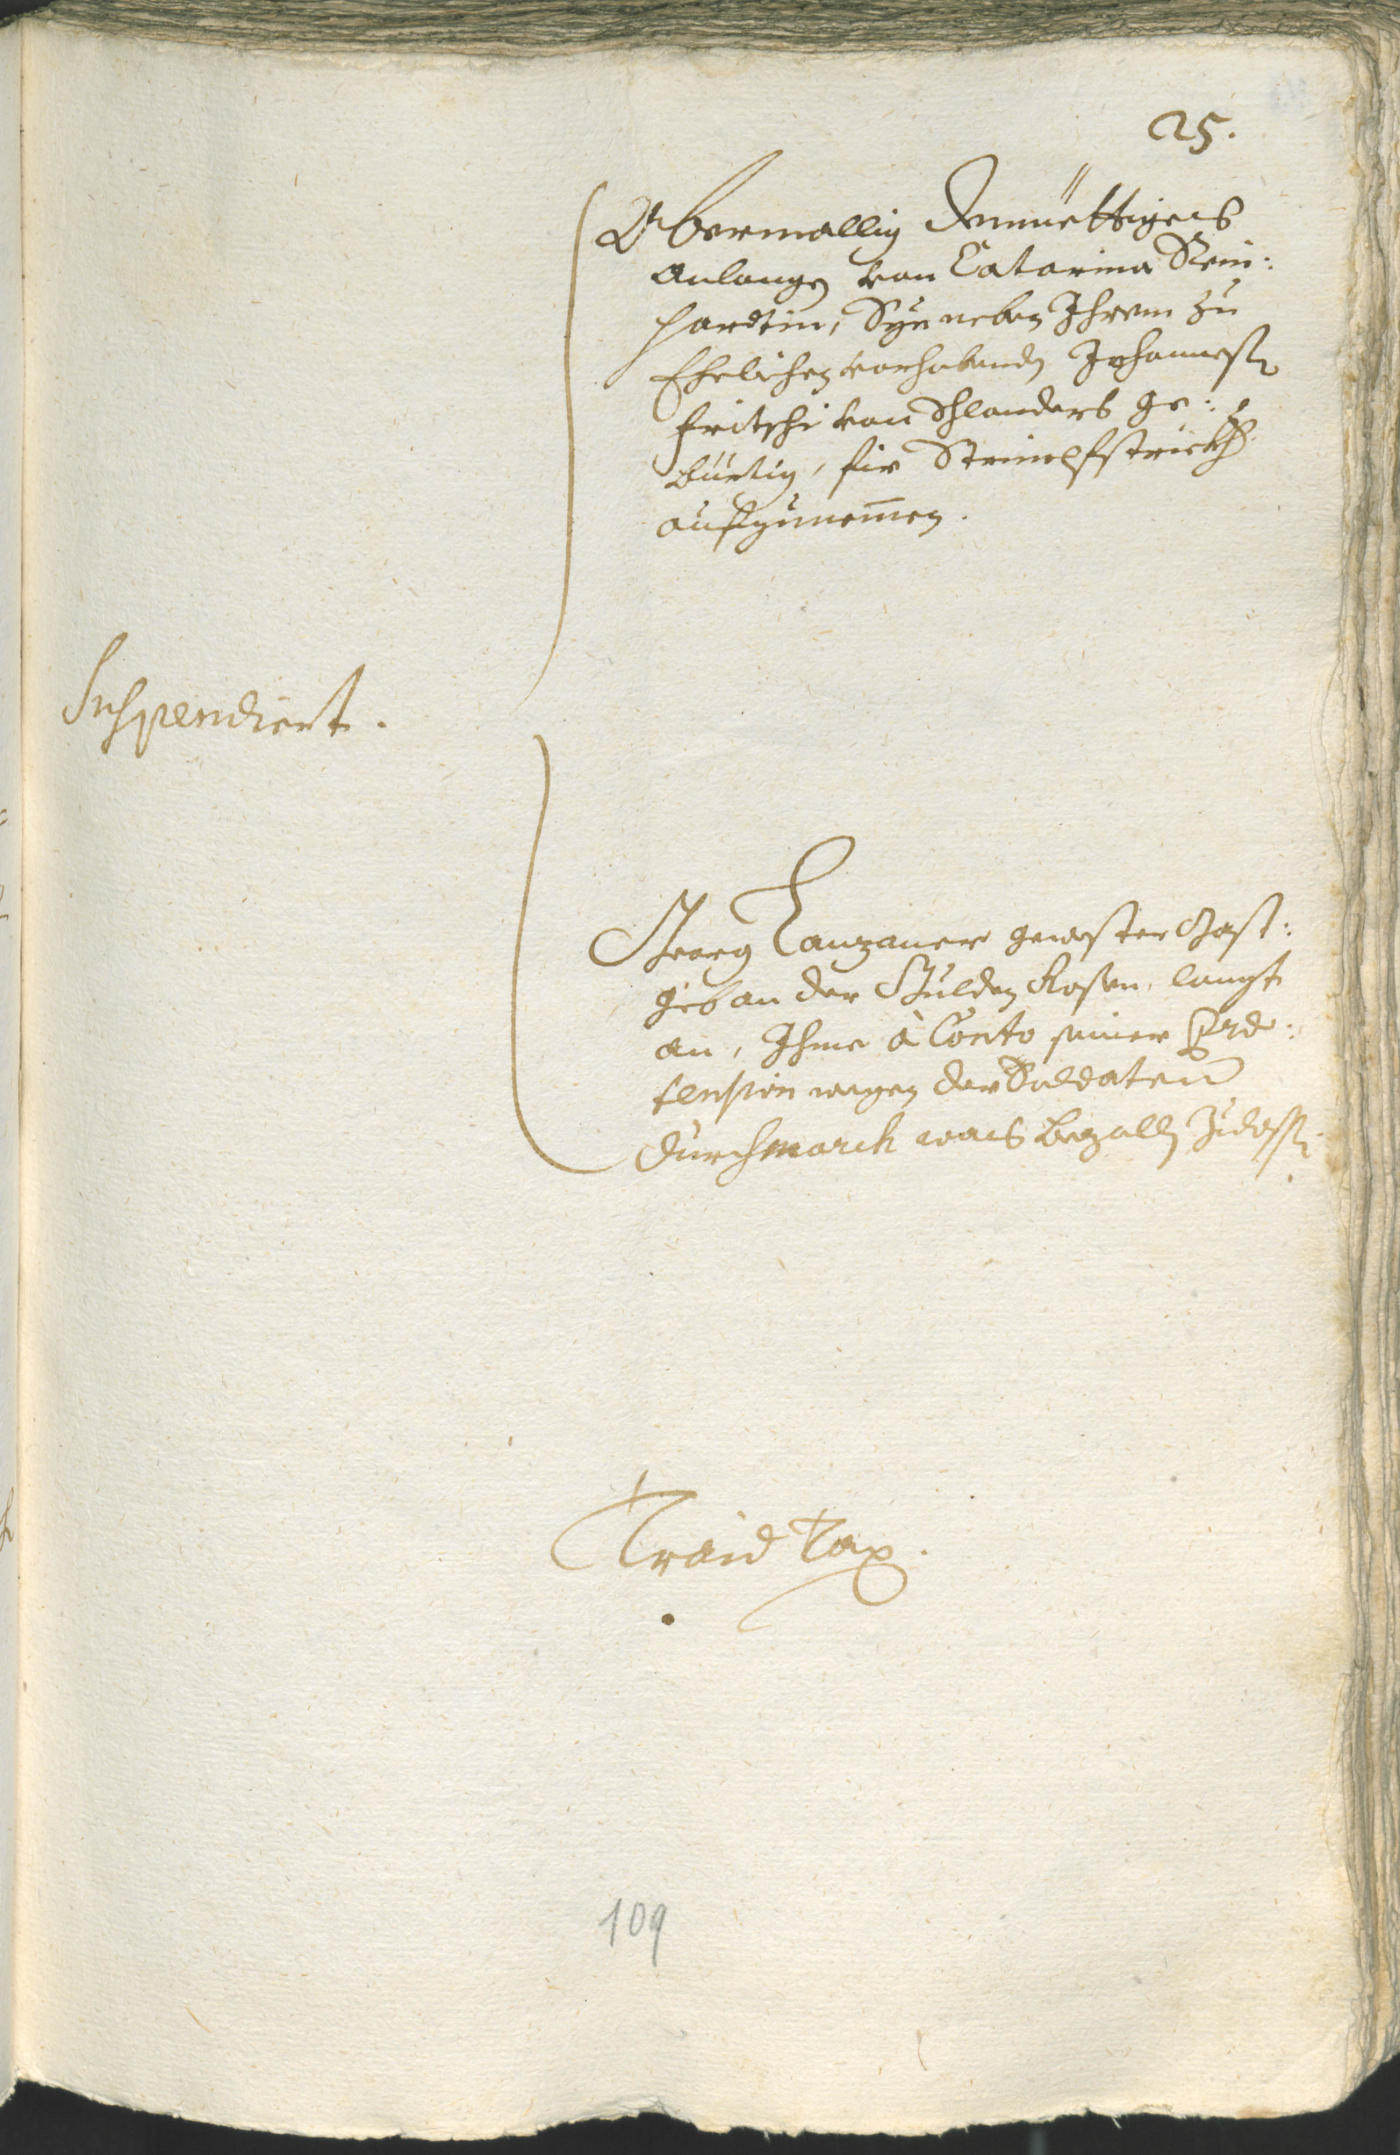 25.
Abermallig demüettiges
anlangen von Catarina Rein:
hardtin, Sye neben Ihrem zu
Ehelichen vorhabendn Johannessn
Fritschi von Schlanders ge:
bürtig, für Strimpfstrickher
aufzunemmen.
Suspendiert.
Georg Lanzaner gewester Gast:
geb an der Gulden Rosen, langt
an, Ihme à Conto seiner Prae:
tension wegen der Soldaten
durchmarch was bezalln zulassn.
Traid Tax.
109